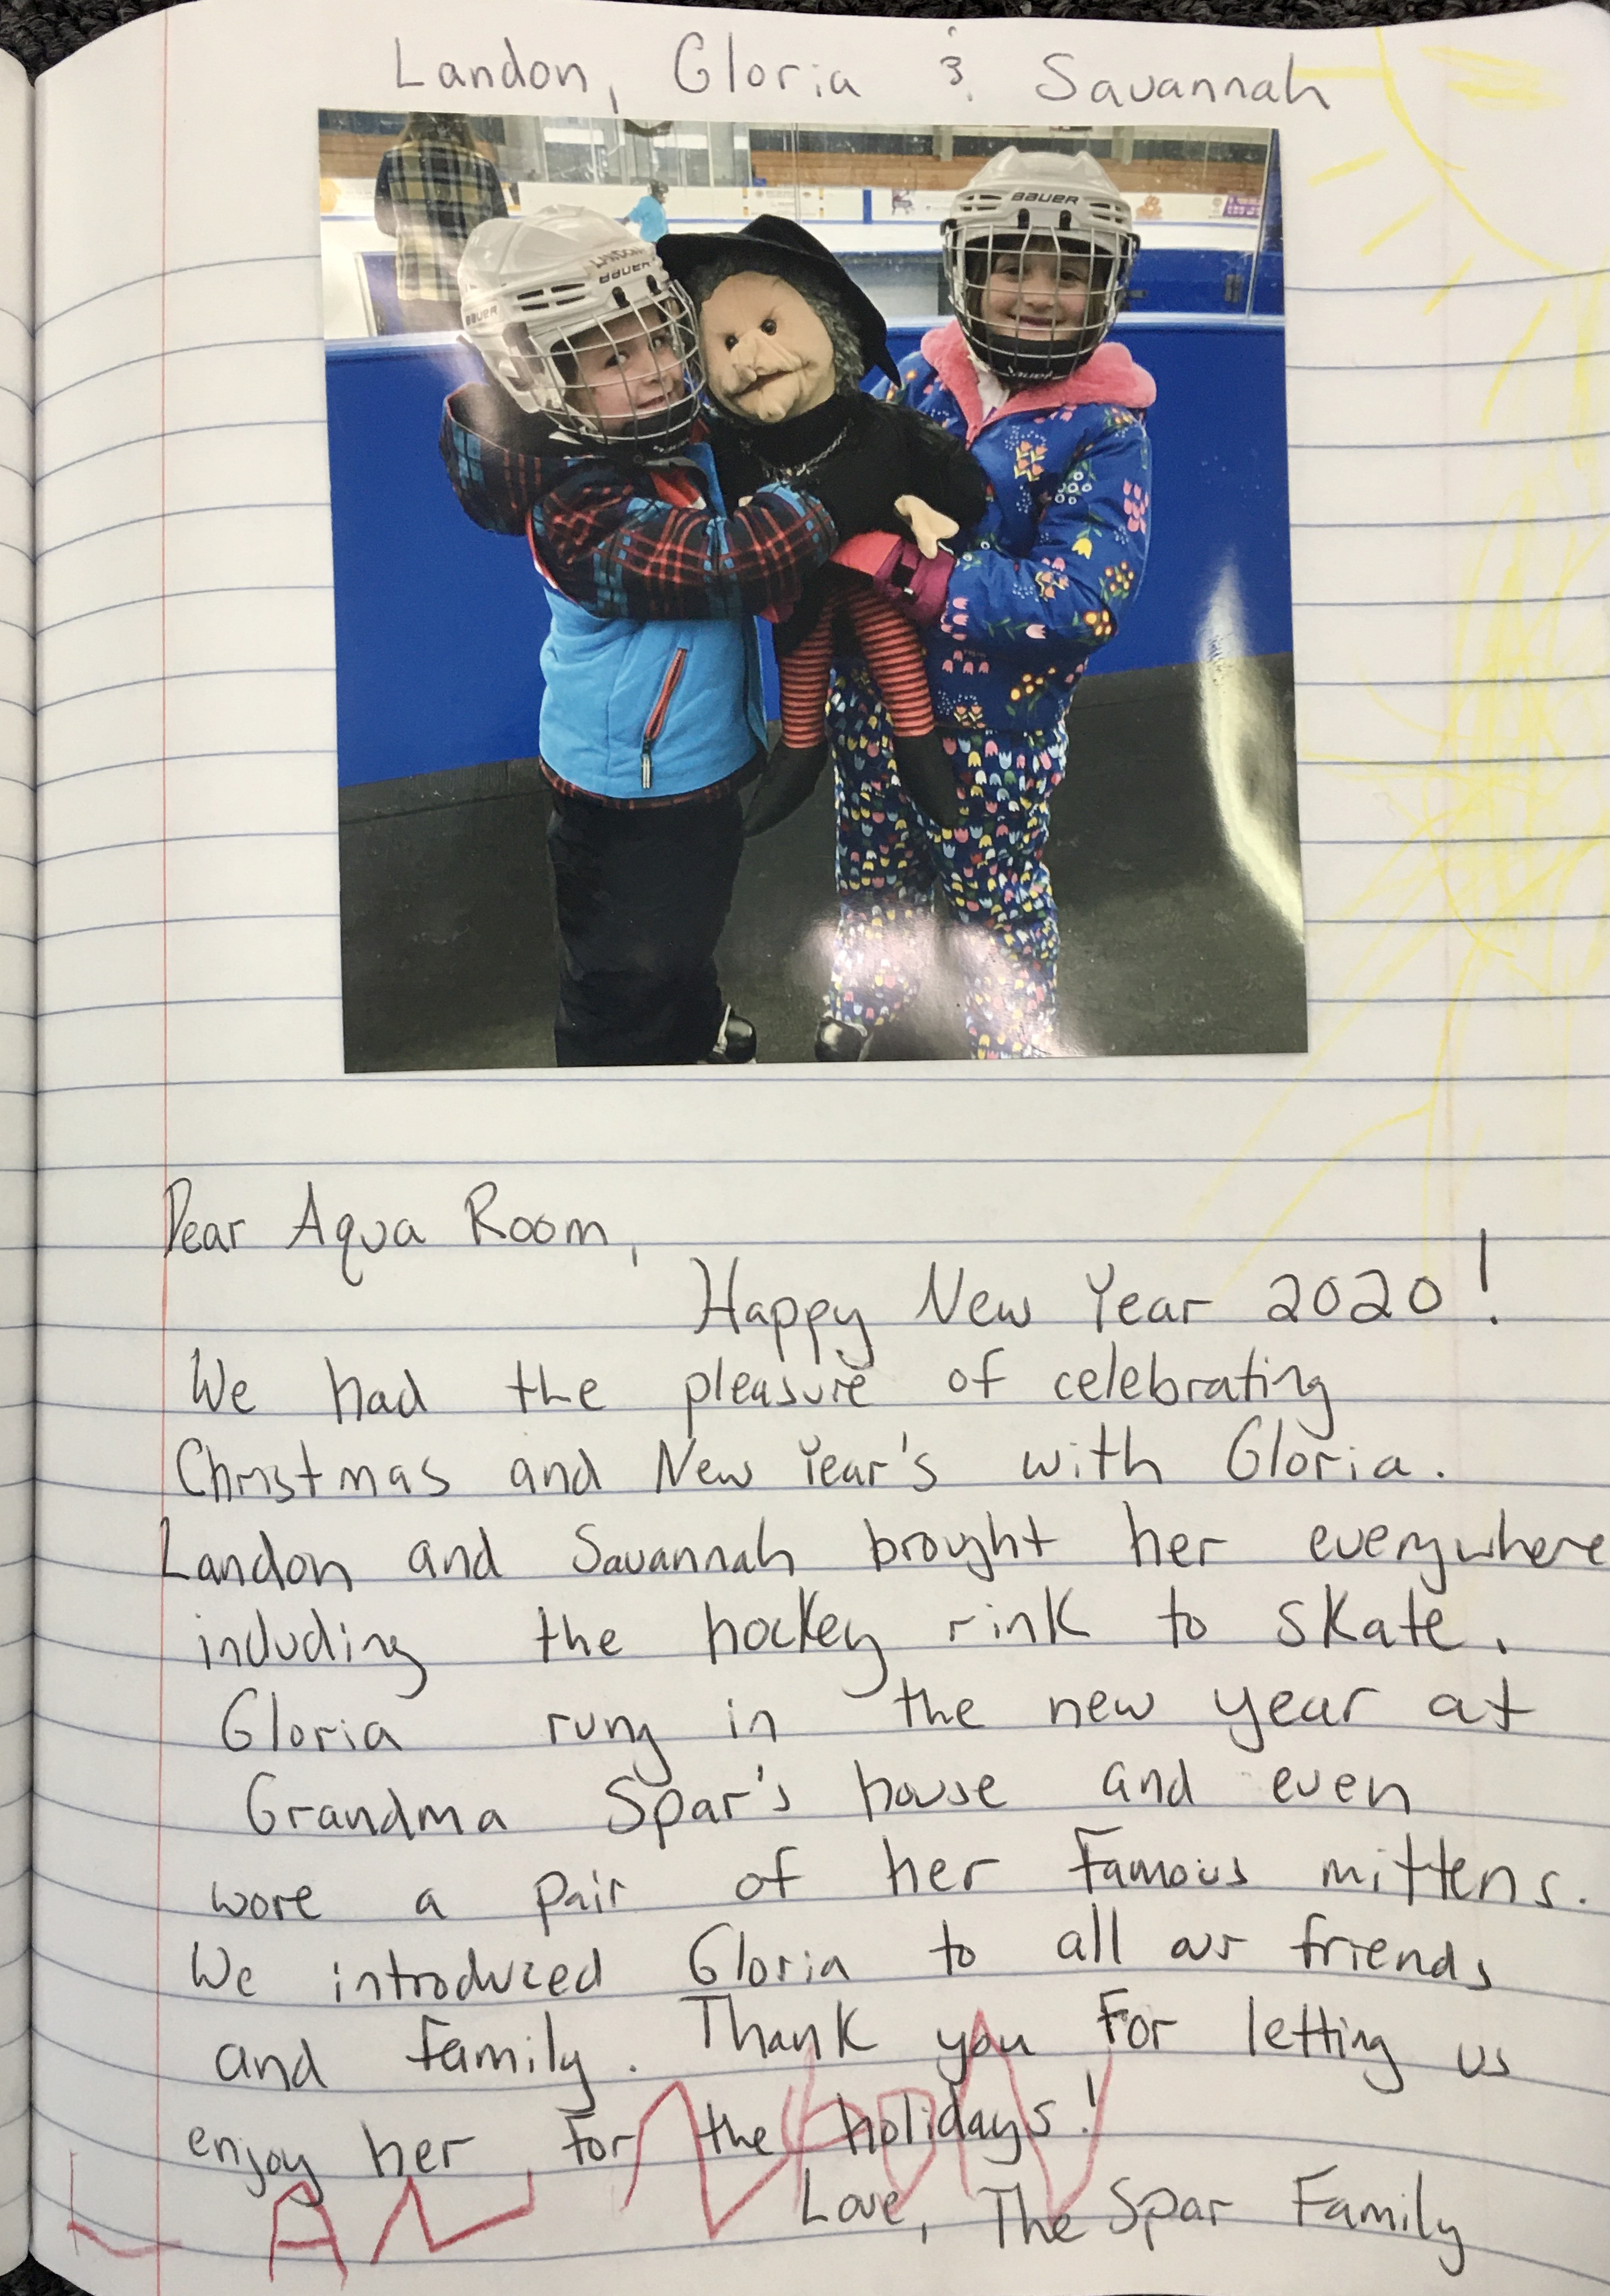 Landon, Gloria & Savannah
LANDON
BAUER
BAUER
BAUER
Dear Aqua Room,
Happy New Year 2020!
We had the pleasure of celebrating
Christmas and New Year's with Gloria.
Landon and Savannah brought her everywhere
including the hockey rink to skate.
Gloria rung in the new year at
Grandma Spar's house and even
wore a pair of her famous mittens.
We introduced Gloria to all our friends
and family. Thank you for letting us
enjoy her for the holidays!
Love, The Spar Family